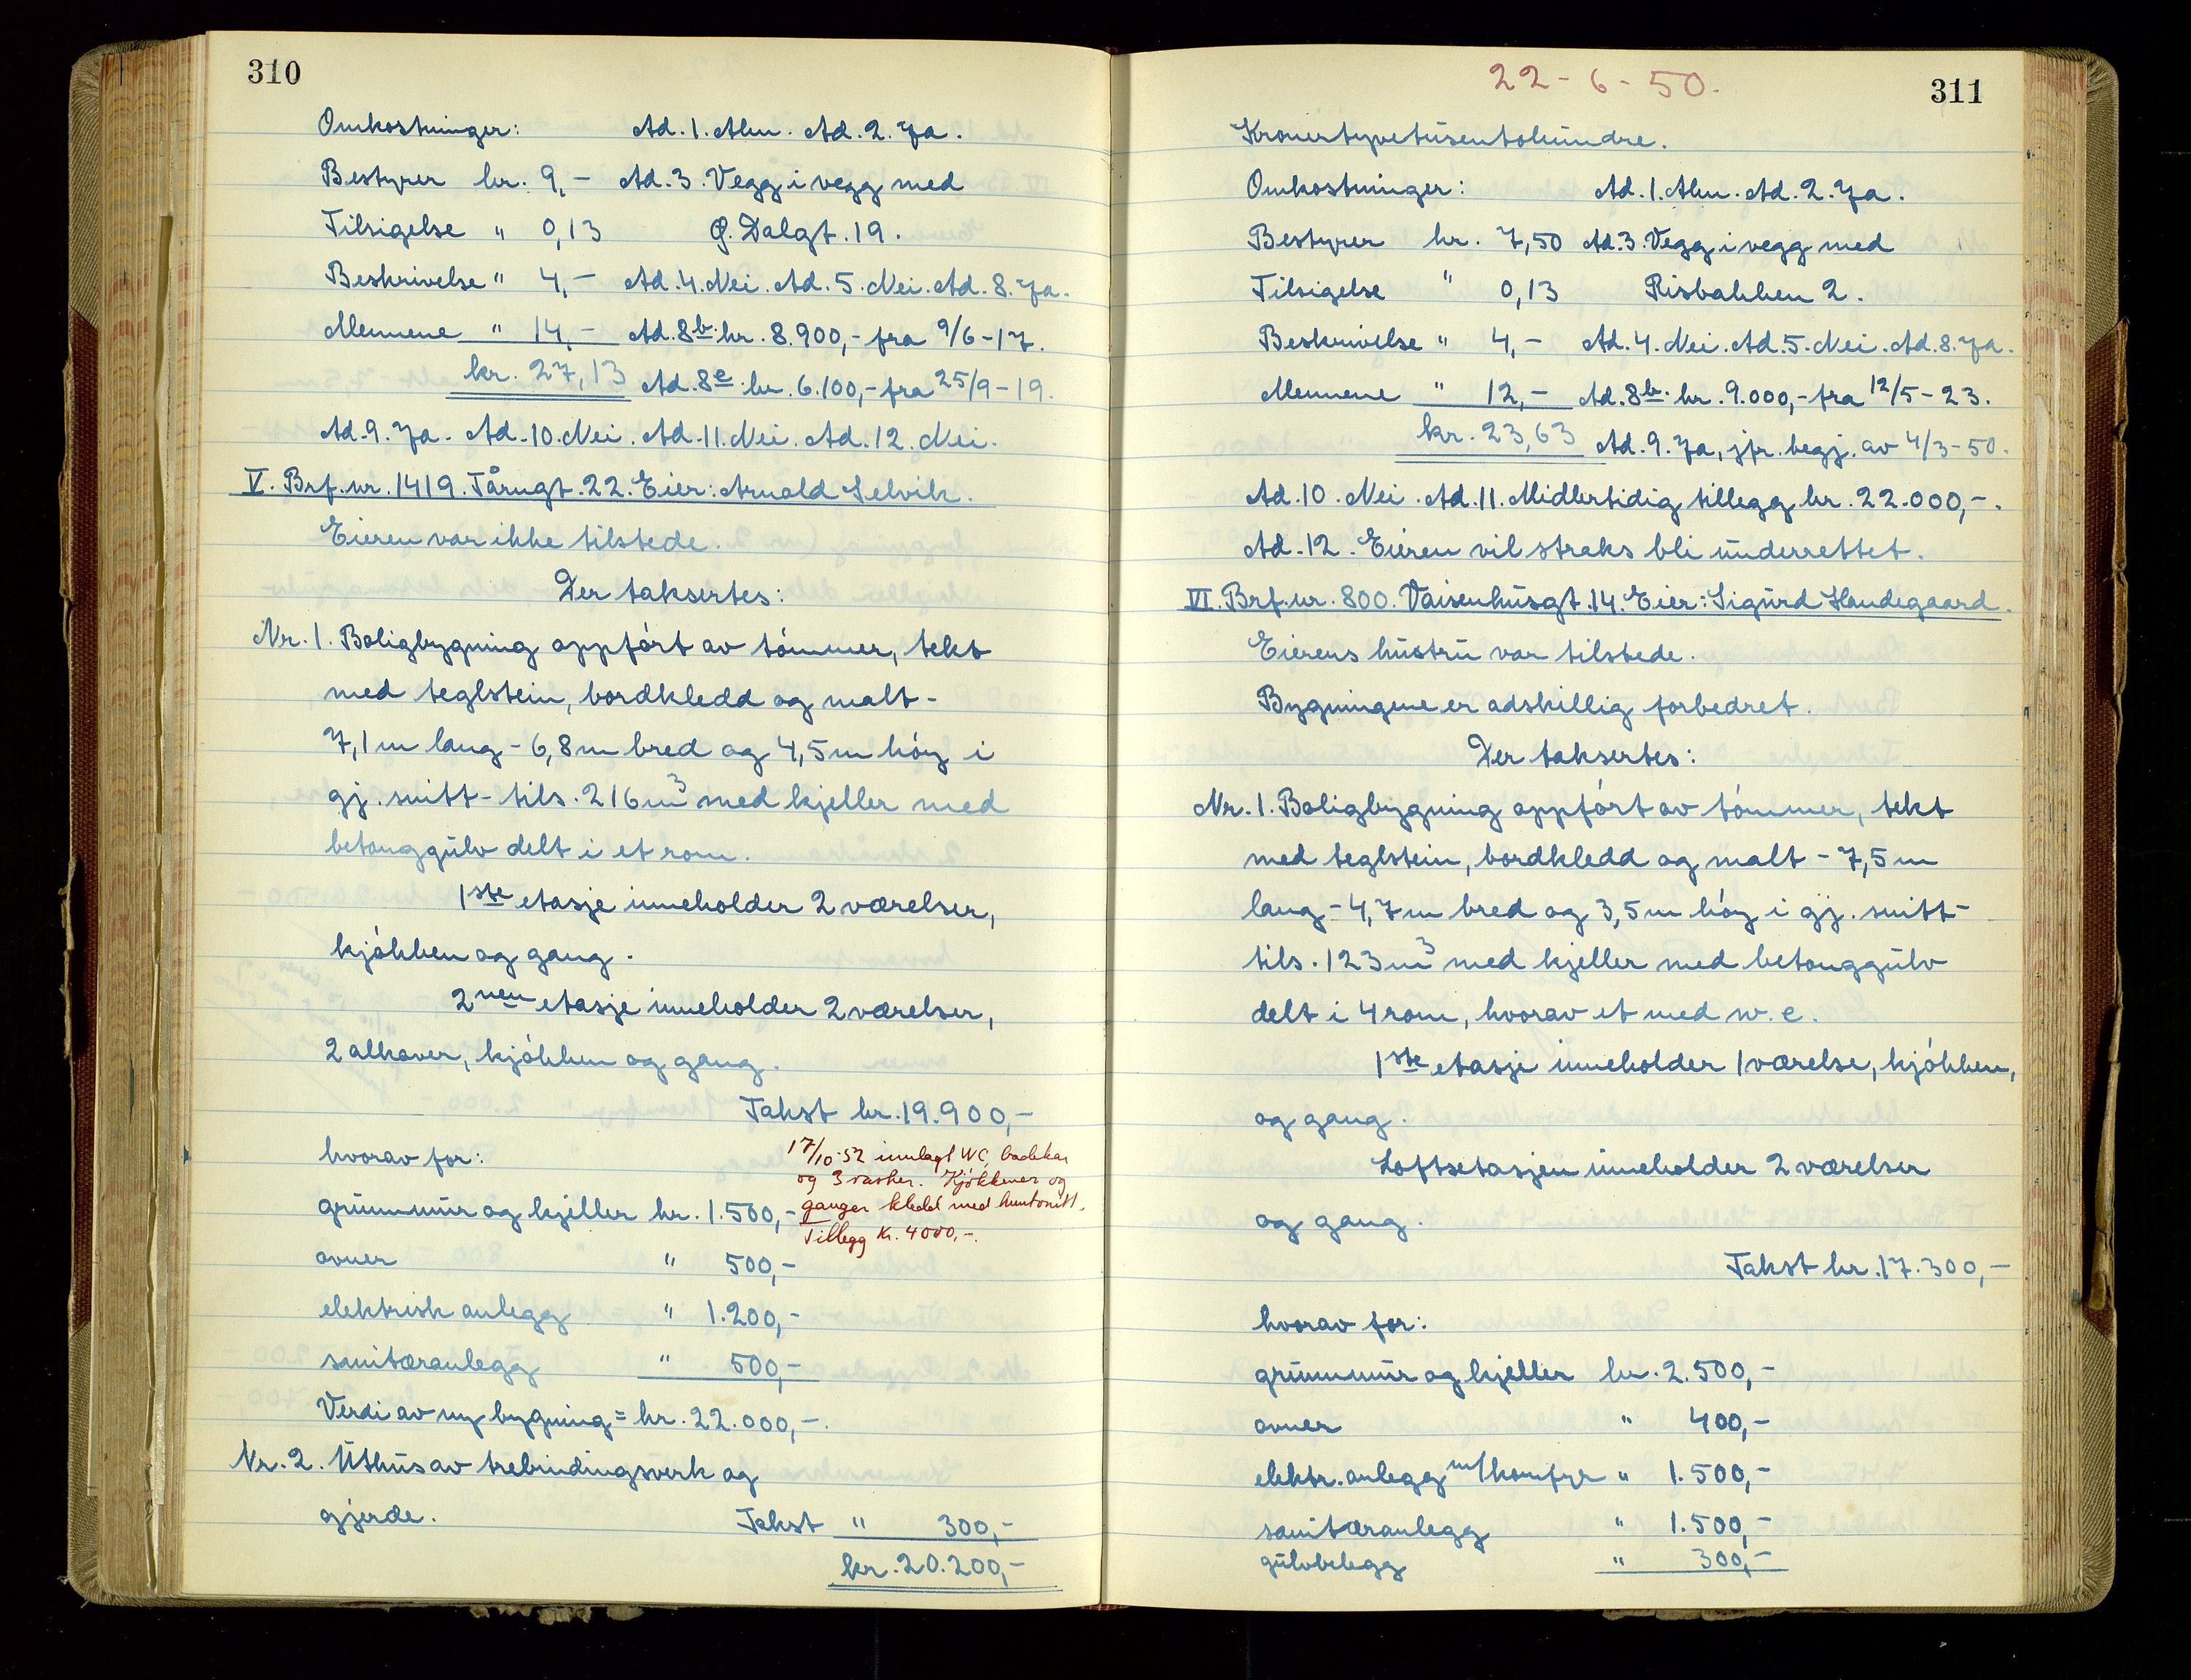 310
Omkostninger: Ad. 1. Alm. Ad. 2. Ja.
Bestyrer kr. 9,- Ad. 3. Vegg i vegg med
Tilsigelse " 0,13 Ø. Dalgt. 19.
Beskrivelse " 4,- Ad. 4. Nei. Ad. 5. Nei. Ad. 8. Ja.
Mennene " 14,- Ad. 8b. kr. 8.900,- fra 9/6-17.
kr. 27,13 Ad. 8e. kr. 6.100,- fra 25/9-19.
Ad. 9. Ja. Ad. 10. Nei. Ad. 11. Nei. Ad. 12. Nei.
V. Brf. nr. 1419. Tårngt. 22. Eier: Arnold Selvik.
Eieren var ikke tilstede.
Der taksertes:
Nr. 1. Boligbygning oppført av tømmer, tekt
med teglstein, bordkledd og malt -
7,1 m lang - 6,8 m bred og 4,5 m høy i
gj. snitt - tils. 216 m³ med kjeller med
betonggulv delt i et rom.
1ste etasje inneholder 2 værelser,
kjøkken og gang.
2nen etasje inneholder 2 værelser,
2 alkover, kjøkken og gang.
Takst kr. 19.900,-
hvorav for:
17/10-52 innlagt WC, badekar
og 3 vasker. Kjøkkener og
grunnmur og kjeller kr. 1.500,-
ganger kledd med huntonitt.
Tillegg kr. 4000,-.
ovner " 500,-
elektrisk anlegg " 1.200,-
sanitæranlegg " 500,-
Verdi av ny bygning = kr. 22.000,-.
Nr. 2. Uthus av trebindingsverk og
gjerde. Takst " 300,-
kr. 20.200,-
22-6-50.
311
Kronertyvetusentohundre.
Omkostninger: Ad. 1. Alm. Ad. 2. Ja.
Bestyrer kr. 7,50 Ad. 3. Vegg i vegg med
Tilsigelse " 0,13 Risbakken 2.
Beskrivelse " 4,- Ad. 4. Nei. Ad. 5. Nei. Ad. 8. Ja.
Mennene " 12,- Ad. 8b. kr. 9.000,- fra 12/5-23.
kr. 23,63 Ad. 9. Ja, jfr. begj. av 4/3-50.
Ad. 10. Nei. Ad. 11. Midlertidig tillegg kr. 22.000,-.
Ad. 12. Eieren vil straks bli underrettet.
VI. Brf. nr. 800. Vaisenhusgt. 14. Eier: Sigurd Haudegaard.
Eierens hustru var tilstede.
Bygningene er adskillig forbedret.
Der taksertes:
Nr. 1. Boligbygning oppført av tømmer, tekt
med teglstein, bordkledd og malt - 7,5 m
lang - 4,7 m bred og 3,5 m høy i gj. snitt -
tils. 123 m³ med kjeller med betonggulv
delt i 4 rom, hvorav et med w. c.
1ste etasje inneholder 1 værelse, kjøkken,
og gang.
Loftsetasjen inneholder 2 værelser
og gang.
Takst kr. 17.300,-
hvorav for:
grunnmur og kjeller kr. 2.500,-
ovner " 400,-
elektr. anlegg m/komfyr " 1.500,-
sanitæranlegg " 1.500,-
gulvbelegg " 300,-